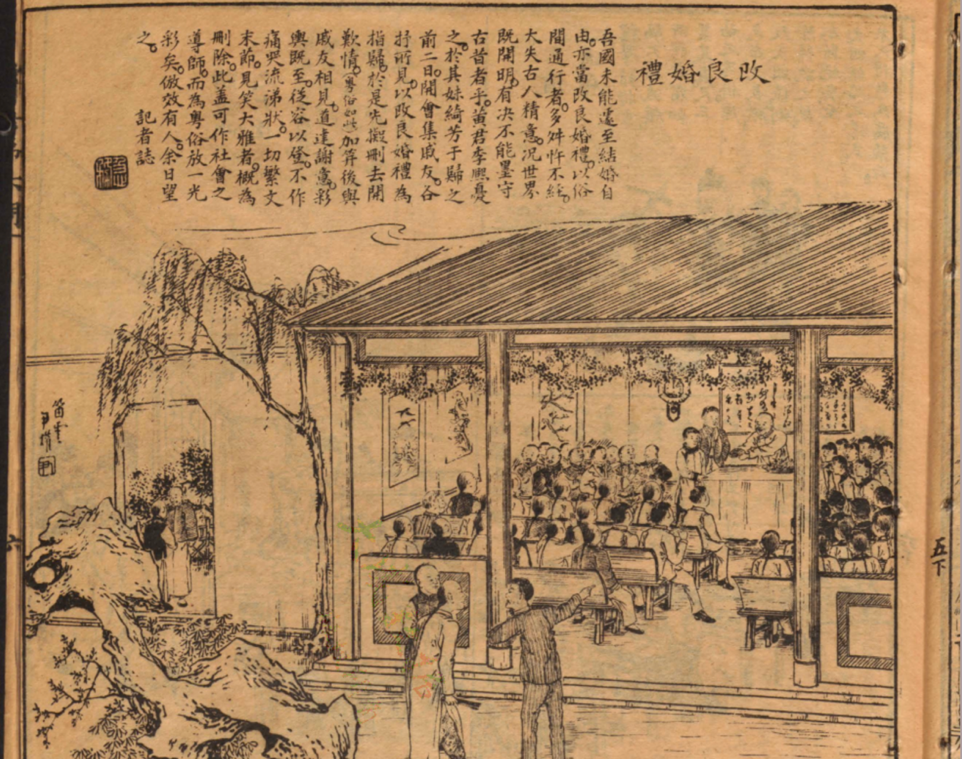 改良婚禮
吾國未能遽至結婚自
由。亦當改良婚禮。以俗
間通行者。多舛忤不經。
大失古人精意。況世界
既開明。有決不能墨守
古昔者乎。黃君李熙憂
之。於其妹綺芳于歸之
前二日。開會集戚友。各
抒所見。以改良婚禮為
指歸。於是先刪去開
歎情。粵俗如此加笄後與
戚友相見。道達謝意。彩
輿既至。從容以登。不作
痛哭流涕狀。一切繁文
末節。見笑大雅者。概為
刪除。此蓋可作社會之
導師。而為粵俗放一光
彩矣。倣效有人。余日望
之。 記者誌
五下